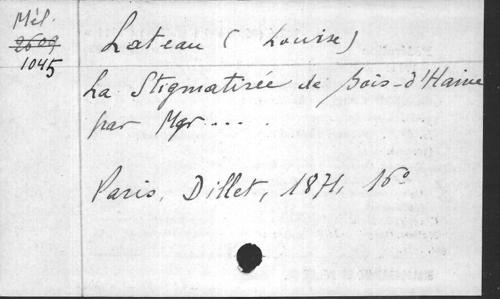 Mél.
2609
1045
Lateau (Louise)
La Stigmatisée de Bois-d'Haine
par Mgr ....
Paris, Dillet, 1871, 16°